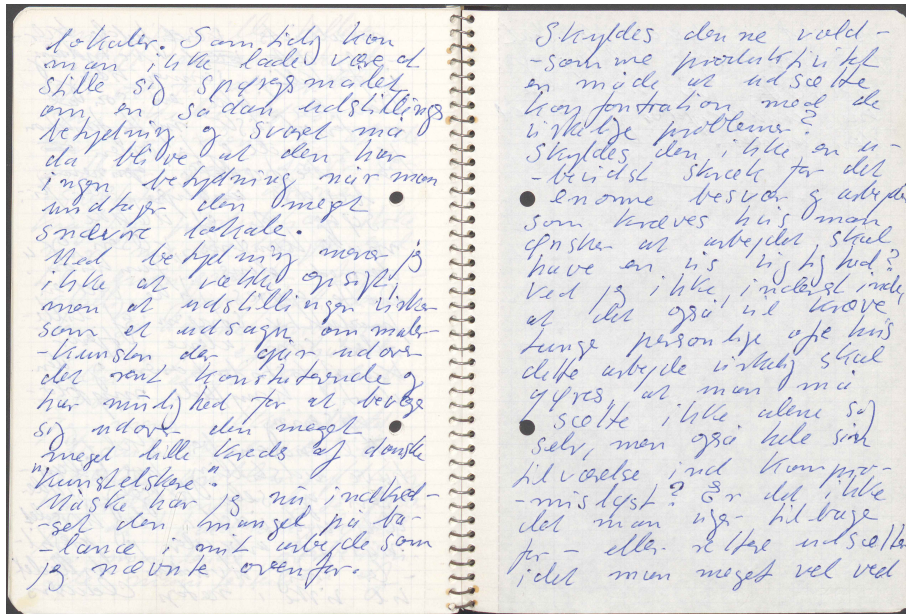 lokaler. Samtidig kan
man ikke lade være at
stille sig spørgsmålet
om en sådan udstillings
betydning og svaret må
da blive at den har
ingen betydning når man
undtager den meget
snævre lokale.
Med betydning mener jeg
ikke at vække opsigt,
men at udstillingen virker
som et udsagn om maler-
-kunsten der går udover
det rent konstaterende og
har mulighed for at bevæge
sig udover den meget
meget lille kreds af danske
"kunstelskere".
Måske har jeg nu indkred-
-set den mangel på ba-
-lance i mit arbejde som
jeg nævnte ovenfor.
Skyldes denne vold-
-somme produktivitet
en måde at udsætte
konfrontration med de
virkelige problemer?
Skyldes den ikke en u-
-bevidst skræk for det
enorme besvær og arbejde
som kræves hvis man
ønsker at arbejdet skal
have en vis vigtighed?
Ved jeg ikke, inderst inde,
at det også vil kræve
tunge personlige ofre hvis
dette arbejde virkelig skal
gøres, at man må
sætte ikke alene sig
selv, men også hele sin
tilværelse ind kompro-
-misløst? Er det ikke
det man viger tilbage
for - eller rettere udsætter
idet man meget vel ved